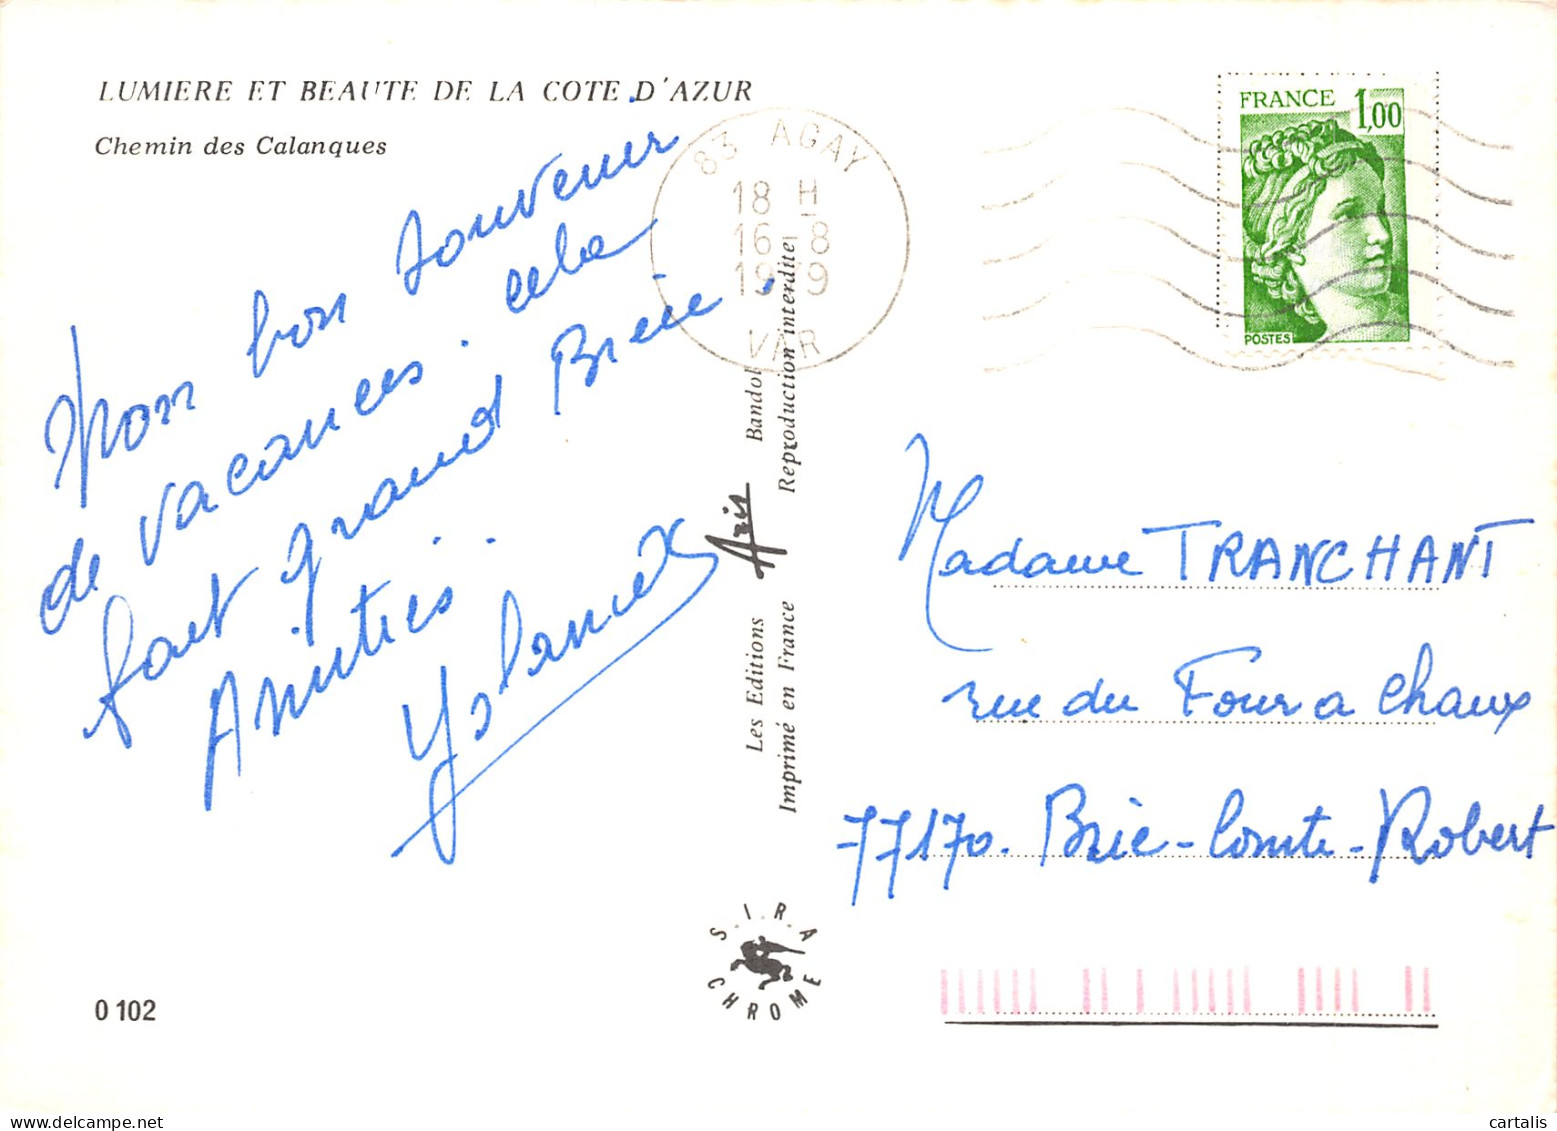 LUMIERE ET BEAUTE DE LA COTE D'AZUR
Chemin des Calanques
Mon bon souvenir
de vacances. cela
fait grand Breie.
Amitiés.
83 AGAY
18 H
16-8
1979
VAR
FRANCE 1,00
POSTES
Les Editions Aris Bandol
Imprimé en France Reproduction interdite
Madame TRANCHANT
rue du Four a Chaux
77170. Brie-Comte-Robert
S.I.R.A
CHROME
0 102
cartalis